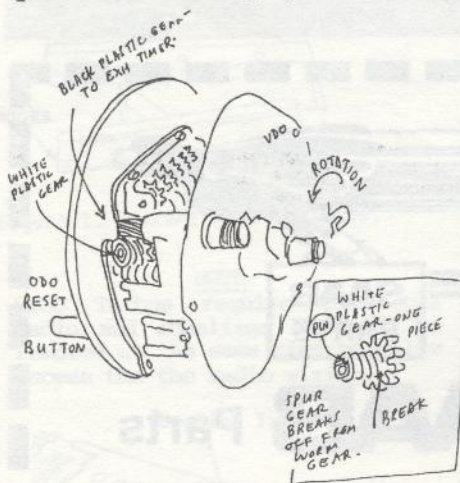 BLACK PLASTIC GEAR
TO EXH TIMER.
WHITE
PLASTIC
GEAR
ODO
RESET
BUTTON
VDO
ROTATION
WHITE
PLASTIC
GEAR-ONE
PIECE
PIN
SPUR
GEAR
BREAKS
OFF FROM
WORM
GEAR.
BREAK
Parts